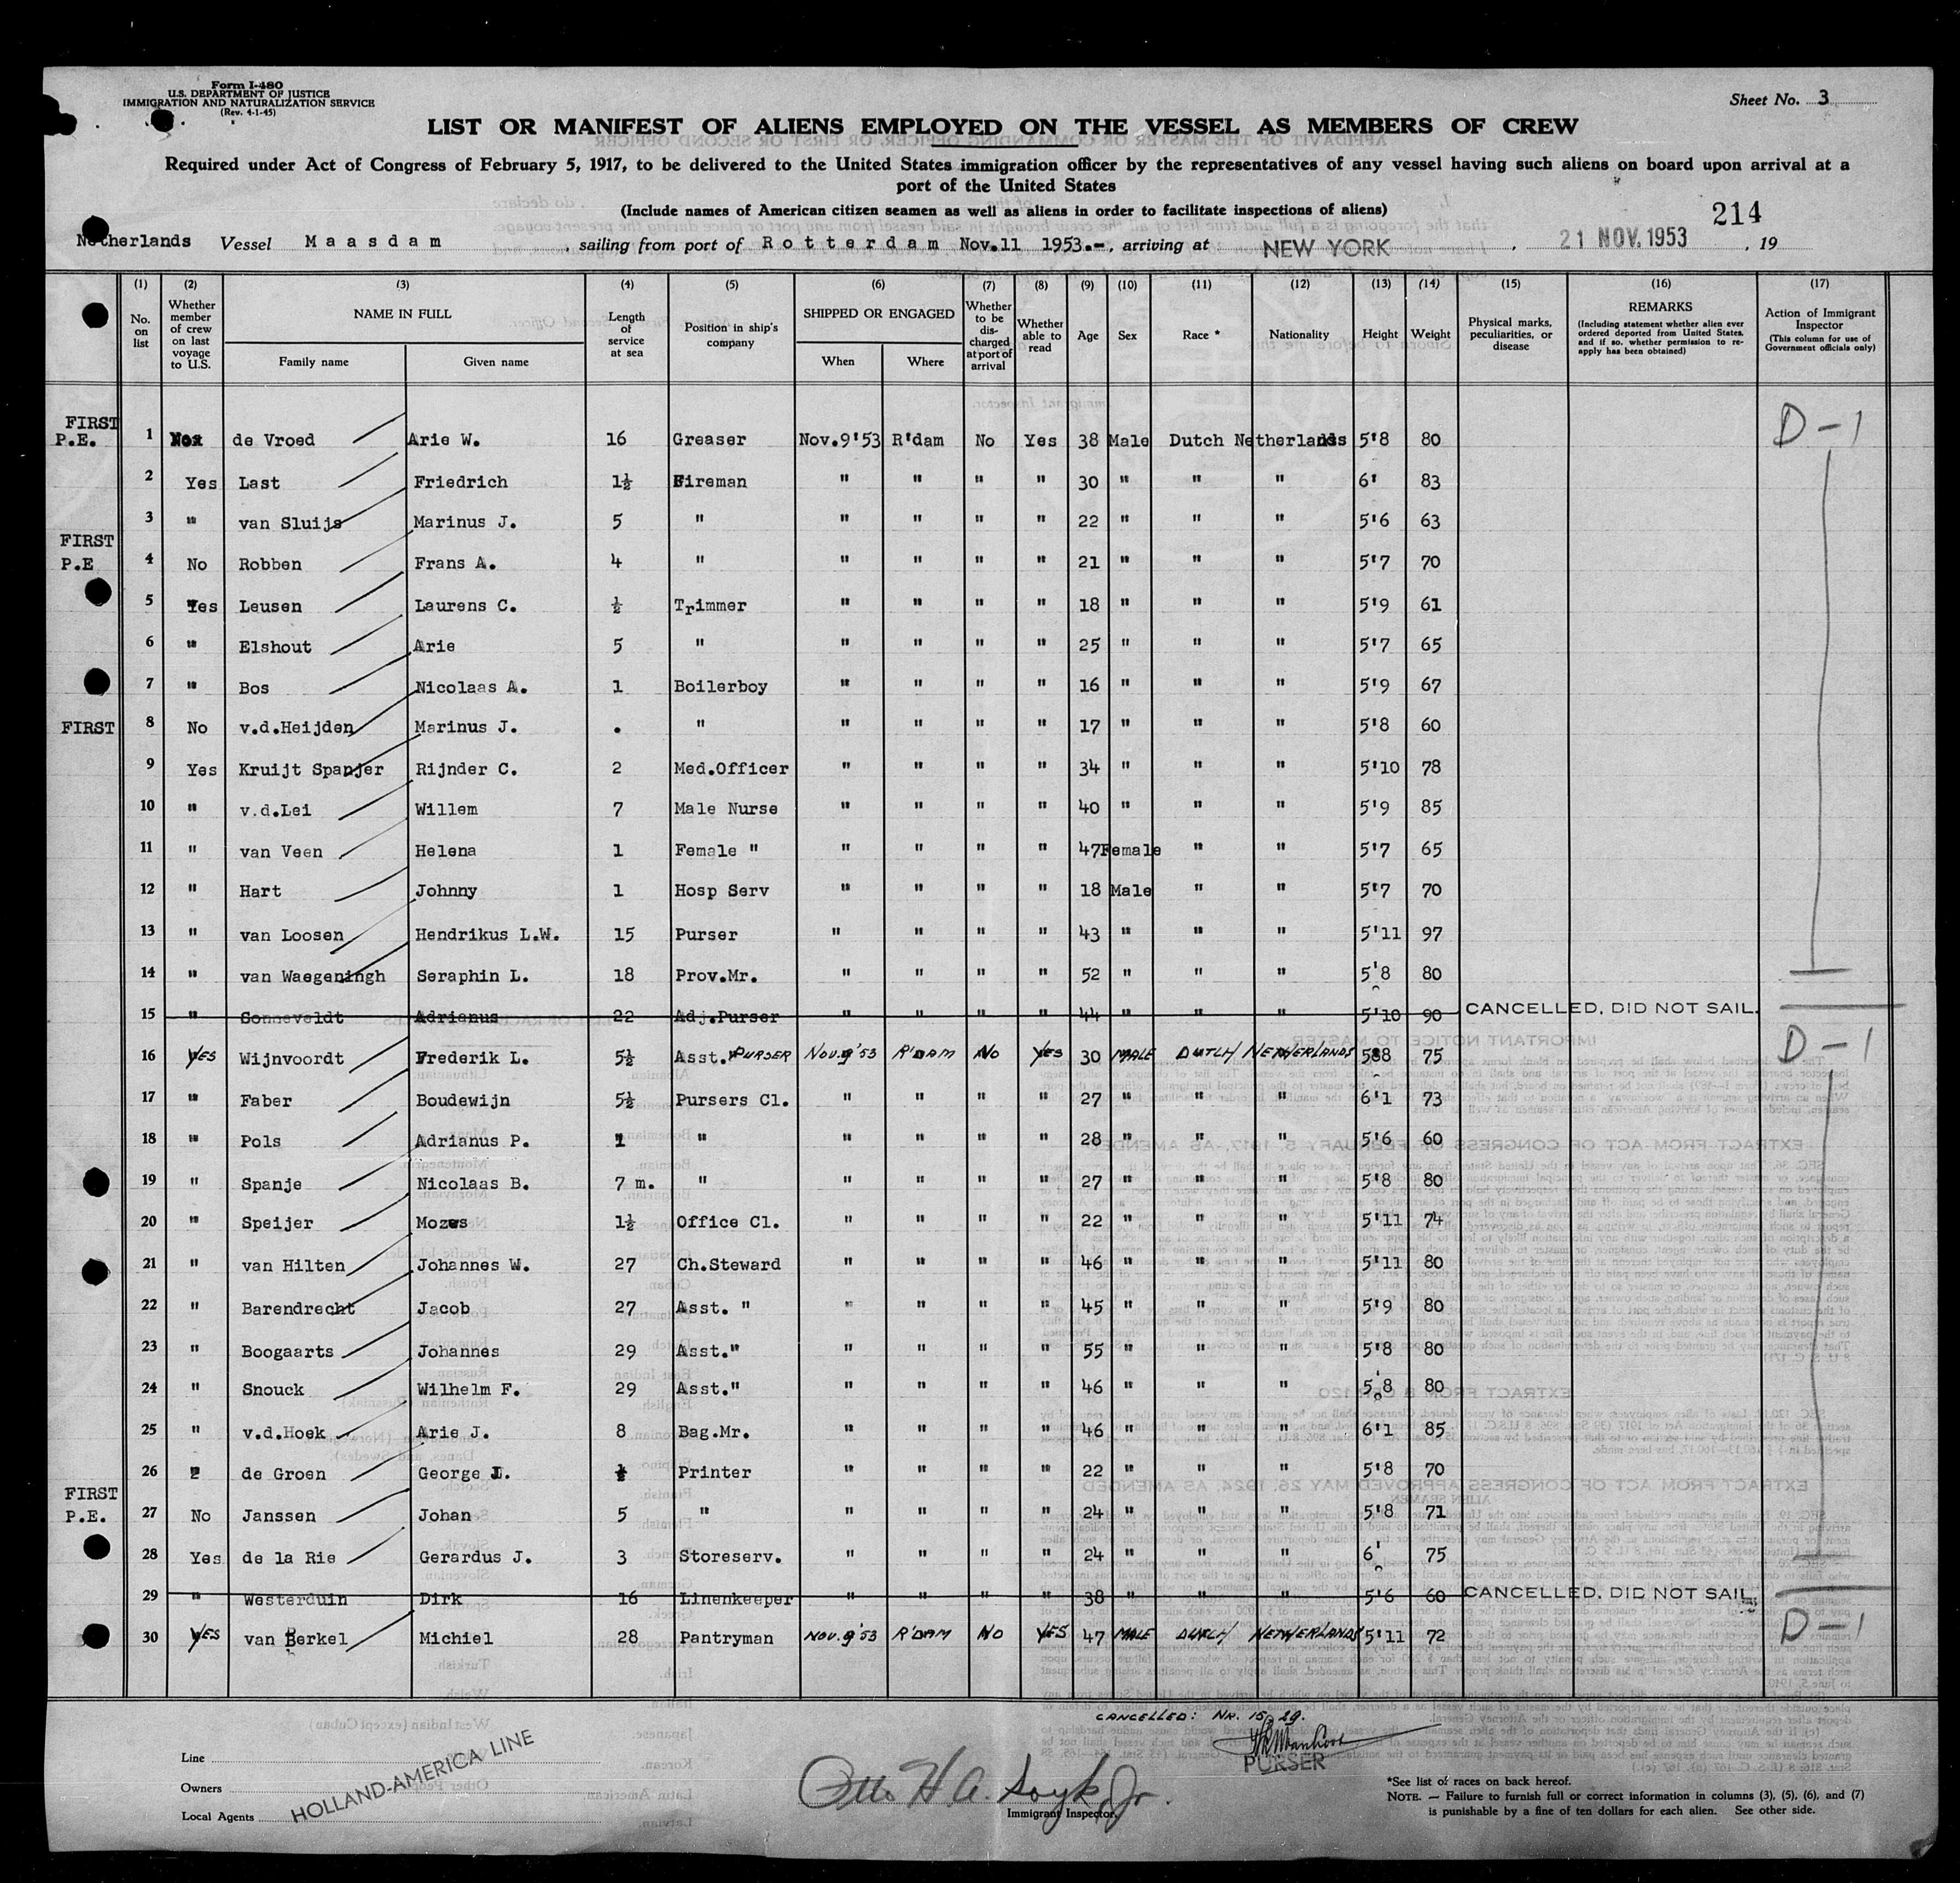 Form I-480
U.S. DEPARTMENT OF JUSTICE
IMMIGRATION AND NATURALIZATION SERVICE
(Rev. 4-1-45)
Sheet No. 3
LIST OR MANIFEST OF ALIENS EMPLOYED ON THE VESSEL AS MEMBERS OF CREW
Required under Act of Congress of February 5, 1917, to be delivered to the United States immigration officer by the representatives of any vessel having such aliens on board upon arrival at a
port of the United States
(Include names of American citizen seamen as well as aliens in order to facilitate inspections of aliens)
214
Netherlands Vessel Maasdam, sailing from port of Rotterdam Nov.11 1953.-, arriving at NEW YORK, 21 NOV. 1953, 19
(1) No. on list
(2) Whether member of crew on last voyage to U.S.
(3) NAME IN FULL Family name Given name
(4) Length of service at sea
(5) Position in ship's company
(6) SHIPPED OR ENGAGED When Where
(7) Whether to be discharged at port of arrival
(8) Whether able to read
(9) Age
(10) Sex
(11) Race *
(12) Nationality
(13) Height
(14) Weight
(15) Physical marks, peculiarities, or disease
(16) REMARKS (Including statement whether alien ever ordered deported from United States, and if so, whether permission to re-apply has been obtained)
(17) Action of Immigrant Inspector (This column for use of Government officials only)
FIRST P.E. 1 de Vroed Arie W. 16 Greaser Nov.9'53 R'dam No Yes 38 Male Dutch Netherlands 5'8 80 D-1
2 Yes Last Friedrich 1½ Fireman " " " " 30 " " " 6' 83
3 " van Sluijs Marinus J. 5 " " " " " 22 " " " 5'6 63
FIRST P.E 4 No Robben Frans A. 4 " " " " " 21 " " " 5'7 70
5 Yes Leusen Laurens C. ½ Trimmer " " " " 18 " " " 5'9 61
6 " Elshout Arie 5 " " " " " 25 " " " 5'7 65
7 " Bos Nicolaas A. 1 Boilerboy " " " " 16 " " " 5'9 67
FIRST 8 No v.d.Heijden Marinus J. . " " " " " 17 " " " 5'8 60
9 Yes Kruijt Spanjer Rijnder C. 2 Med.Officer " " " " 34 " " " 5'10 78
10 " v.d.Lei Willem 7 Male Nurse " " " " 40 " " " 5'9 85
11 " van Veen Helena 1 Female " " " " " 47 Female " " 5'7 65
12 " Hart Johnny 1 Hosp Serv " " " " 18 Male " " 5'7 70
13 " van Loosen Hendrikus L.W. 15 Purser " " " " 43 " " " 5'11 97
14 " van Waegeningh Seraphin L. 18 Prov.Mr. " " " " 52 " " " 5'8 80
15 " Sonneveldt Adrianus 22 Adj.Purser " " " " 44 " " " 5'10 90 CANCELLED, DID NOT SAIL.
16 YES Wijnvoordt Frederik L. 5½ Asst. PURSER NOV. 9'53 R'DAM NO YES 30 MALE DUTCH NETHERLANDS 5'8 75 D-1
17 " Faber Boudewijn 5½ Pursers Cl. " " " " 27 " " " 6'1 73
18 " Pols Adrianus P. 1 " " " " " 28 " " " 5'6 60
19 " Spanje Nicolaas B. 7 m. " " " " " 27 " " " 5'8 80
20 " Speijer Mozes 1½ Office Cl. " " " " 22 " " " 5'11 74
21 " van Hilten Johannes W. 27 Ch.Steward " " " " 46 " " " 5'11 80
22 " Barendrecht Jacob 27 Asst. " " " " " 45 " " " 5'9 80
23 " Boogaarts Johannes 29 Asst." " " " " 55 " " " 5'8 80
24 " Snouck Wilhelm F. 29 Asst." " " " " 46 " " " 5'8 80
25 " v.d.Hoek Arie J. 8 Bag.Mr. " " " " 46 " " " 6'1 85
26 " de Groen George L. ½ Printer " " " " 22 " " " 5'8 70
FIRST P.E. 27 No Janssen Johan 5 " " " " " 24 " " " 5'8 71
28 Yes de la Rie Gerardus J. 3 Storeserv. " " " " 24 " " " 6' 75
29 " Westerduin Dirk 16 Linenkeeper " " " " 38 " " " 5'6 60 CANCELLED, DID NOT SAIL.
30 YES van Berkel Michiel 28 Pantryman NOV. 9'53 R'DAM NO YES 47 MALE DUTCH NETHERLANDS 5'11 72 D-1
CANCELLED: NR. 15, 29.
PURSER
Line
Owners
Local Agents
HOLLAND-AMERICA LINE
Immigrant Inspector.
*See list of races on back hereof.
NOTE. — Failure to furnish full or correct information in columns (3), (5), (6), and (7)
is punishable by a fine of ten dollars for each alien. See other side.